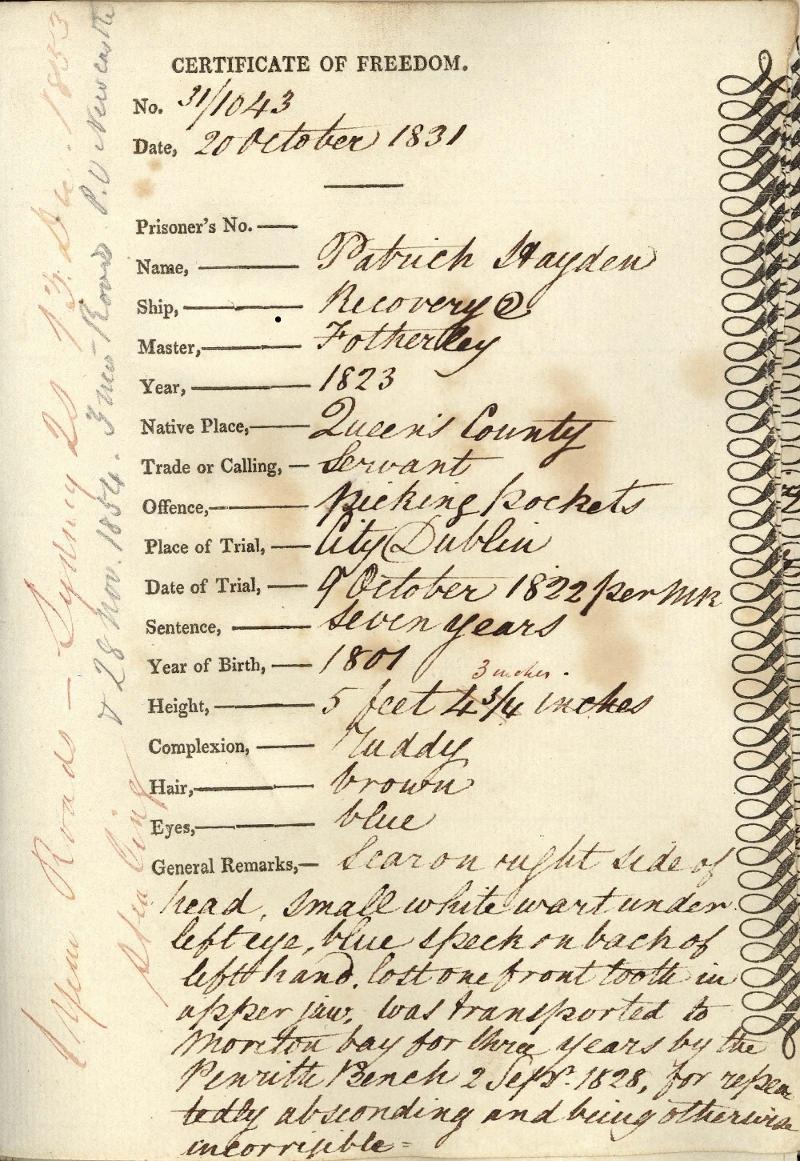 CERTIFICATE OF FREEDOM.
No. 31/1043
Date, 20 October 1831
Prisoner's No.
Name, Patrick Hayden
Ship, Recovery @
Master, Fotherley
Year, 1823
Native Place, Queen's County
Trade or Calling, Servant
Offence, picking pockets
Place of Trial, City Dublin
Date of Trial, 9 October 1822 per MR
Sentence, seven years
Year of Birth, 1801
3 inches.
Height, 5 feet 4 3/4 inches
Complexion, Ruddy
Hair, brown
Eyes, blue
General Remarks, Scar on right side of
head, small white wart under
left eye, blue speck on back of
left hand, lost one front tooth in
upper jaw, was transported to
Moreton bay for three years by the
Penrith Bench 2 Septr. 1828, for repea
tedly absconding and being otherwise
incorrigible =
1 year Roads - Sydney 20 13 Dec. 1853
stealing
& 28 Nov. 1854. 3 mos - Roads P.O Newcastle